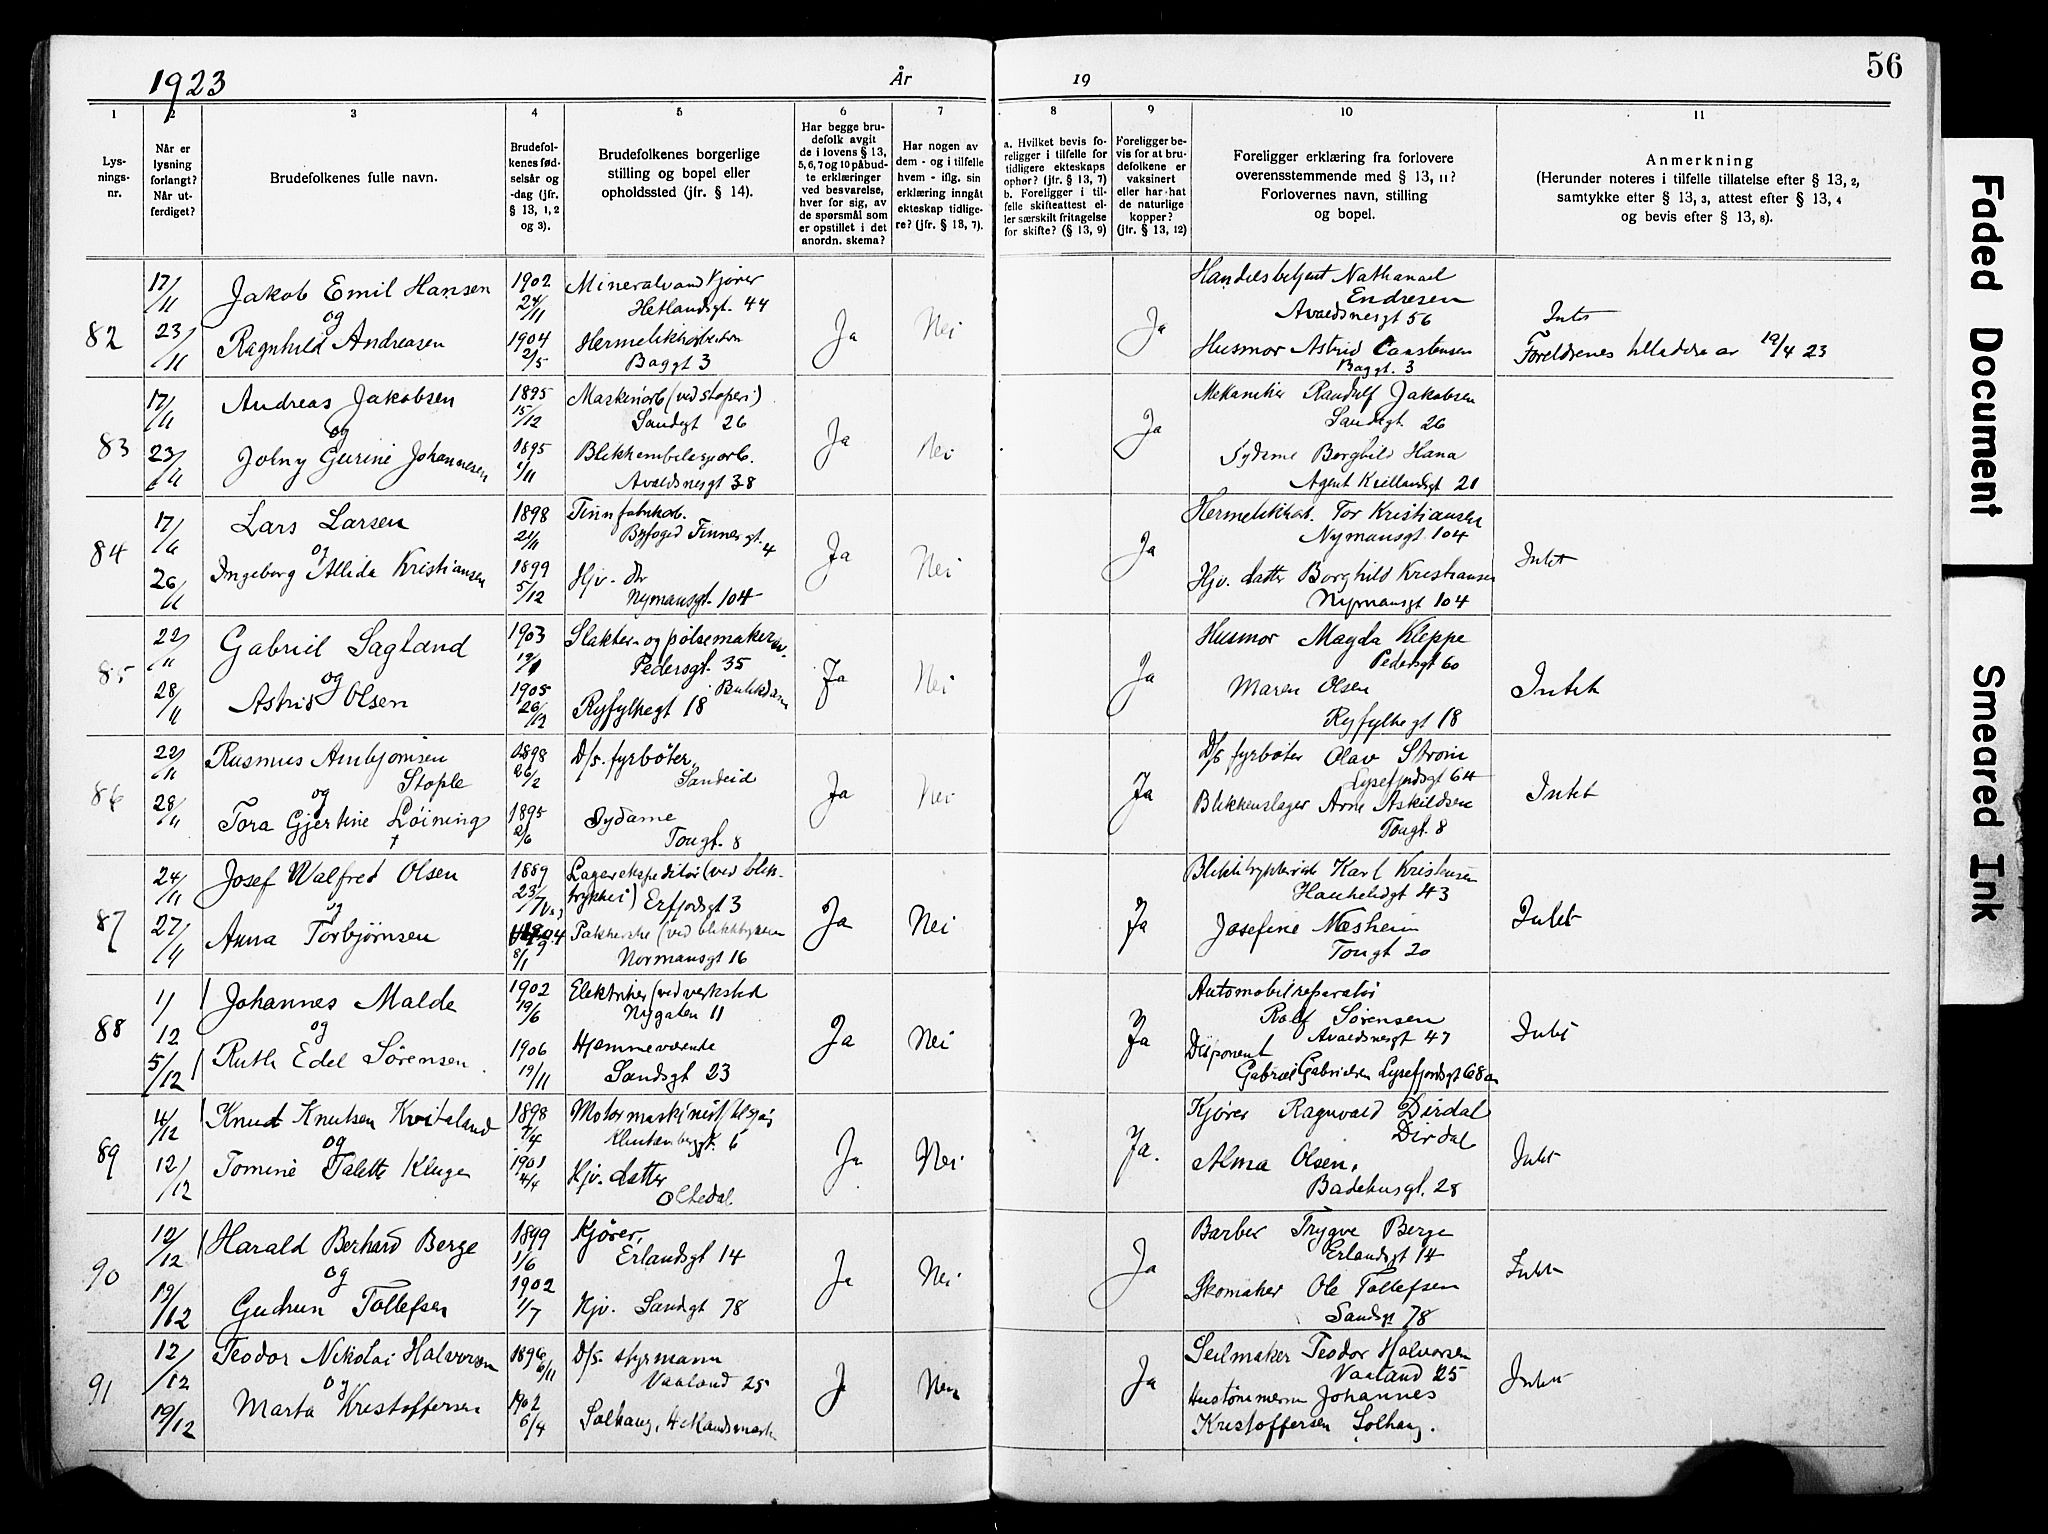 56
1923
År
19
1
2
3
4
5
6
7
8
9
10
11
Lys-
nings-
nr.
Når er
lysning
forlangt?
Når ut-
ferdiget?
Brudefolkenes fulle navn.
Brudefol-
kenes fød-
selsår og
-dag (jfr.
§ 13, 1, 2
og 3).
Brudefolkenes borgerlige
stilling og bopel eller
opholdssted (jfr. § 14).
Har begge bru-
defolk avgit
de i lovens § 13,
5, 6, 7 og 10 påbud-
te erklæringer
ved besvarelse,
hver for sig, av
de spørsmål som
er opstillet i det
anordn. skema?
Har nogen av
dem - og i tilfelle
hvem - iflg. sin
erklæring inngått
ekteskap tidlige-
re? (jfr. § 13, 7).
a. Hvilket bevis fo-
religger i tilfelle for
tidligere ekteskaps
ophør? (jfr. § 13, 7)
b. Foreligger i til-
felle skifteattest el-
ler særskilt fritagelse
for skifte? (§ 13, 9)
Foreligger be-
vis for at bru-
defolkene er
vaksinert
eller har hat
de naturlige
kopper?
(jfr. § 13, 12)
Foreligger erklæring fra forlovere
overensstemmende med § 13, 11?
Forlovernes navn, stilling
og bopel.
Anmerkning
(Herunder noteres i tilfelle tillatelse efter § 13, 2,
samtykke efter § 13, 3, attest efter § 13, 4
og bevis efter § 13, 8).
82
17/11
23/11
Jakob Emil Hansen
og
Ragnhild Andreasen
1902
24/11
1904
2/5
Mineralvandkjører
Hetlandsgt. 44
Baggt 3
Ja
Nei
Ja
Handelsbetjent Nathanael
Endresen
Avaldsnesgt 56
Husmor Astrid Carstensen
Baggt. 3
Intet
Foreldrenes tilladelse av 19/4 23
83
17/11
23/11
Andreas Jakobsen
og
Jolny Gurine Johannesen
1895
15/12
1895
1/11
Maskinarb (ved støperi)
Sandsgt 26
Avaldsnesgt 38
Ja
Nei
Ja
Mekaniker Randulf Jakobsen
Sandsgt 26
Sydame Borghild Hana
Agent Kiellandsgt 21
84
17/
26/11
Lars Larsen
og
Ingeborg Allida Kristiansen
1898
21/11
1899
5/12
Tinnfabrikarb.
Byfoged Finnesgt. 4
Hjv. dtr
Nymansgt. 104
Ja
Nei
Ja
Tor Kristiansen
Nymansgt 104
Hjv. datter Borghild Kristiansen
Nymansgt 104
Intet
85
22/11
28/11
Gabriel Sagland
og
Astrid Olsen
1903
1905
26/12
Slakter- og pølsemakersv.
Pedersgt. 35
Butikdame
Ryfylkegt 18
Ja
Nei
Ja
Husmor Magda Kleppe
Pedersgt 60
Maren Olsen
Ryfylkegt 18
Intet
86
22/11
28/11
Rasmus Ambjørnsen
Stople
og
Tora Gjertine Løining
1898
26/2
1895
2/6
D/s. fyrbøter,
Sandeid
Sydame
Tougt. 8
Ja
Nei
Ja
D/s fyrbøter Olav Strøm
Lysefjordsgt 64
Blikkenslager Arne Askildsen
Tougt. 8
Intet
87
24/11
27/11
Josef Walfred Olsen
og
Anna Torbjørnsen
1889
23/7
8/1
Lagerekspeditør (ved blik-
trykkeri) Erfjordsgt 3
Pakkerske (ved
Normansgt 16
Ja
Nei
Ja
Karl Kristensen
Haukeligt 43
Josefine Næsheim
Tougt 20
Intet
88
1/12
5/12
Johannes Malde
og
Ruth Edel Sörensen
1902
19/6
1906
19/11
Elektriker (ved verksted
Nygaten 11
Hjemmeværende
Sandsgt 23
Ja
Nei
Ja
Automobilreparatør
Rolf Sörensen
Avaldsnesgt 47
Disponent
Gabriel Gabrielsen Lysefjordsgt 68a
Intet
89
4/12
12/12
Knud Knutsen Kvitaland
og
Tomine Talette Kluge
1898
7/4
1901
4/4
Motormaskinist
6
Hjv. datter
Oltedal
Ja
Nei
Ja.
Kjører Ragnvald Dirdal
Dirdal
Alma Olsen,
Badehusgt. 28
Intet
90
12/12
19/12
Harald Berhard Berge
og
Gudrun Tollefsen
1899
1/6
1902
1/7
Kjører,
Erlandsgt 14
Hjv. Sandsgt 78
Ja
Nei
Ja
Barber Trygve Berge
Erlandsgt 14
Skomaker Ole Tollefsen
Sandsgt 78
Intet
91
12/12
19/12
Teodor Nikolai Halvorsen
og
Marta Kristoffersen
1896
6/11
1902
6/4
D/s. styrmann
Vaaland 25
Solhaug, Hetlandsmark
Ja
Nei
Ja
Seilmaker Teodor Halvorsen
Vaaland 25
Hustømmermann Johannes
Kristoffersen Solhaug.
Intet
Faded Document
Smeared Ink